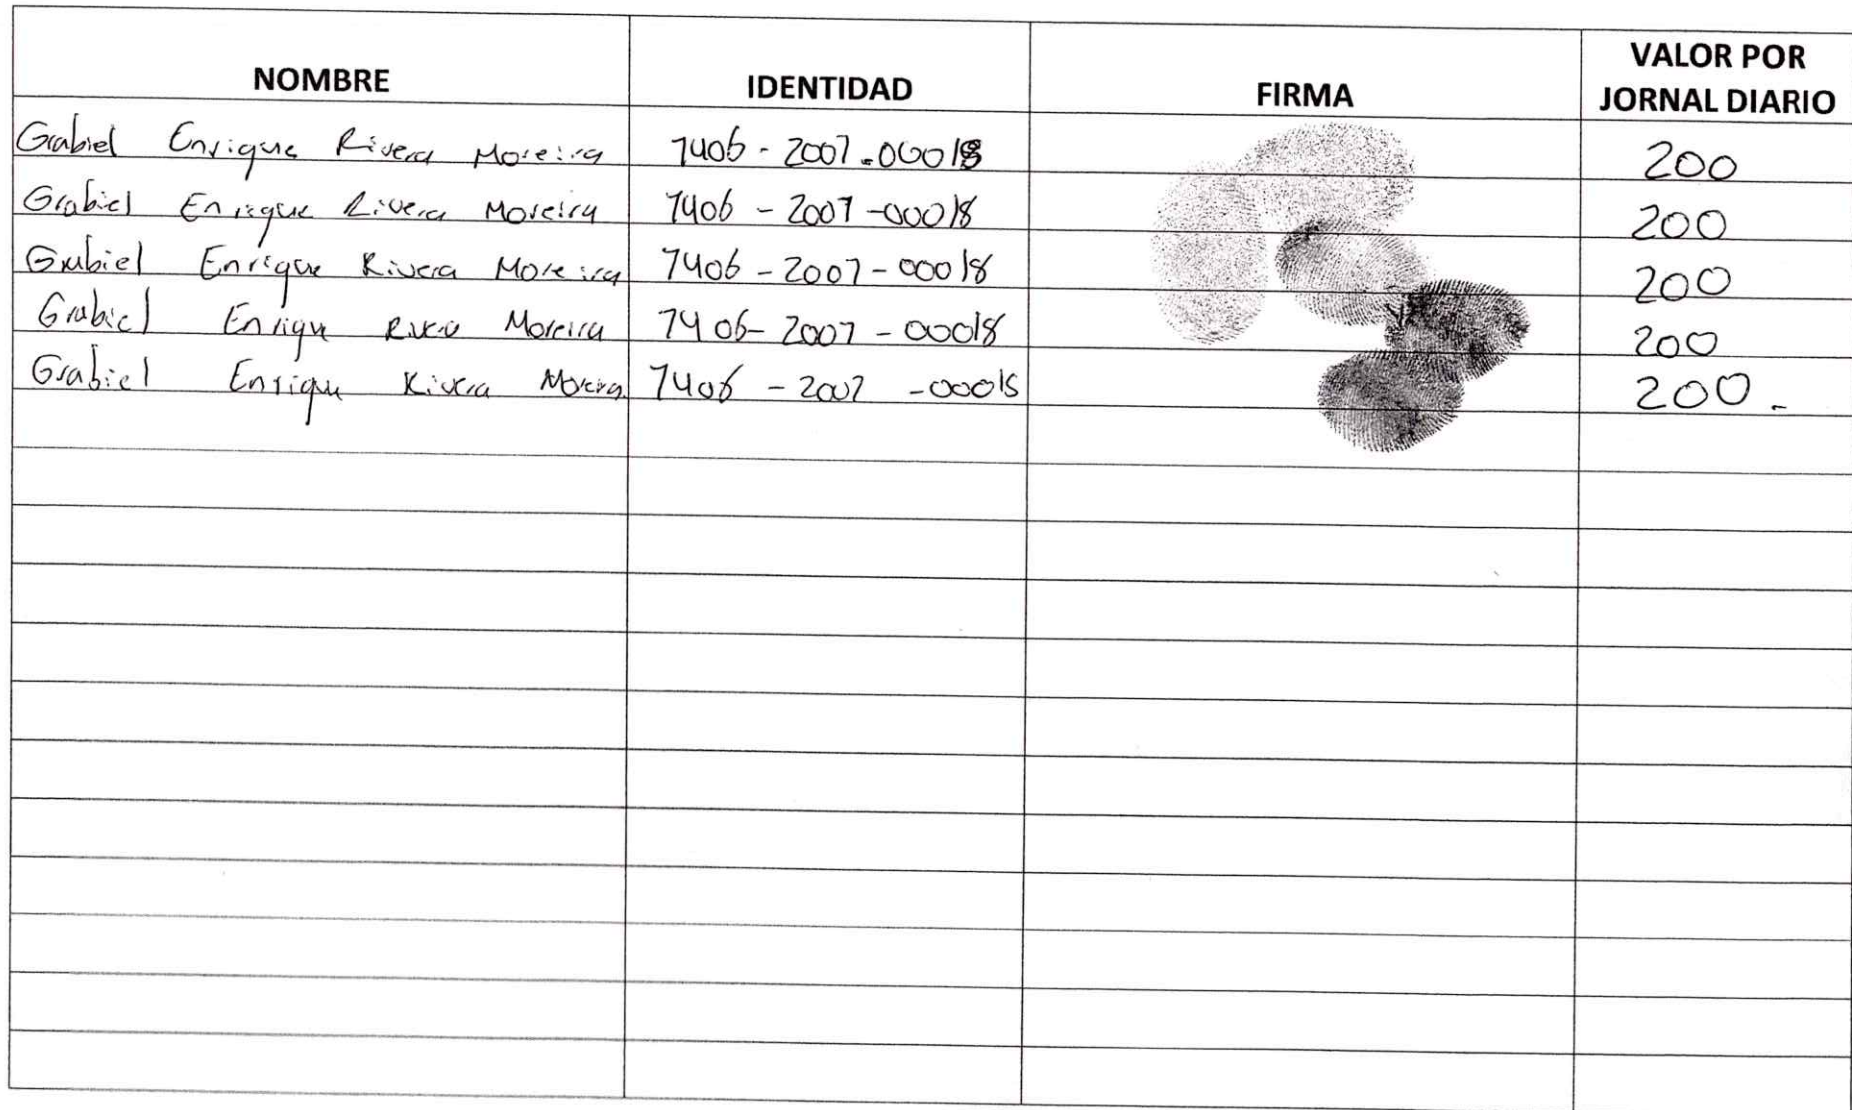 NOMBRE IDENTIDAD FIRMA VALOR POR JORNAL DIARIO
Grabiel Enrique Rivera Moreira 1406-2007.00018 200
Grabiel Enrique Rivera Moreira 1406-2007-00018 200
Grabiel Enrique Rivera Moreira 1406-2007-00018 200
Grabiel Enrique Rivera Moreira 1406-2007-00018 200
Grabiel Enrique Rivera Moreira 1406-2007-00018 200.